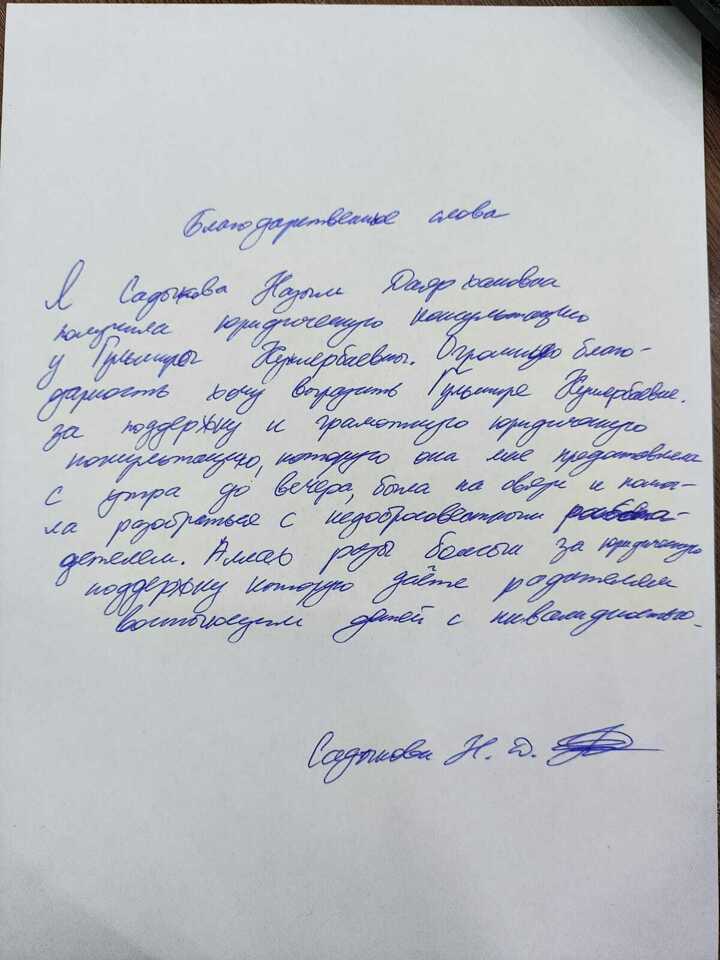 Благодарственные слова
Я Садыкова Назым Даярхановна
получила юридическую консультацию
у Гульмиры Нукербаевны. Огромную благо-
дарность хочу выразить Гульмире Нукербаевне.
за поддержку и грамотную юридическую
консультацию, которую она мне предоставляла
с утра до вечера, была на связи и помог-
ла разобраться с недобросовестным
детелем. Аллах разы болсын за юридическую
поддержку которую даёте родителям
воспитующим детей с инвалидностью.
Садыкова Н. Д.